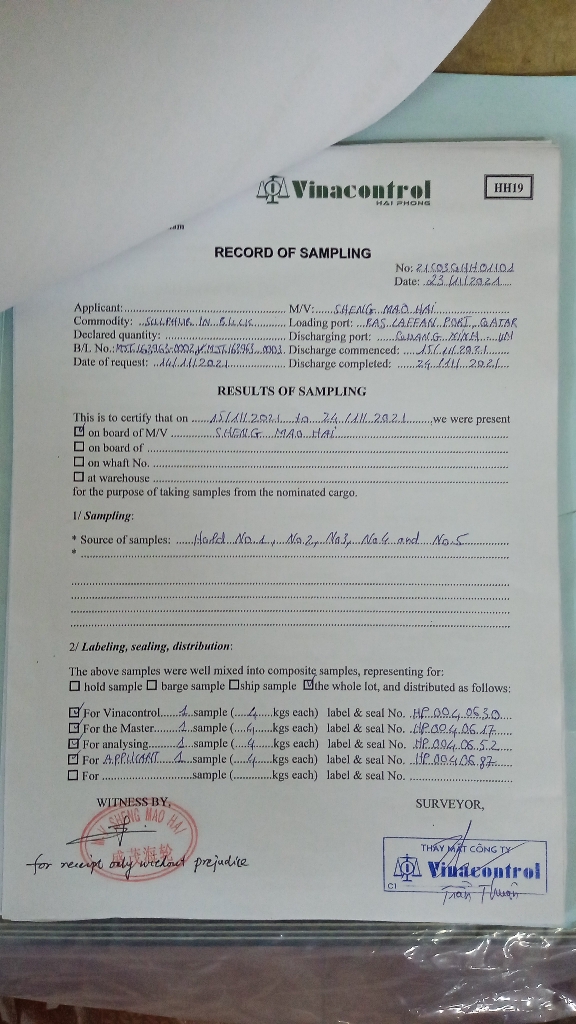 Vinacontrol
HAI PHONG
HH19
RECORD OF SAMPLING
No:
Date: 23/11/2021
Applicant: M/V: SHENG MAO HAI
Commodity: SULPHUR IN BULK Loading port: RAS LAFFAN PORT, QATAR
Declared quantity: Discharging port: QUANG NINH VN
B/L No.: Discharge commenced: 15/11/2021
Date of request: 14/11/2021 Discharge completed: 24/11/2021
RESULTS OF SAMPLING
This is to certify that on 15/11/2021 to 24/11/2021, we were present
on board of M/V SHENG MAO HAI
on board of
on whaft No.
at warehouse
for the purpose of taking samples from the nominated cargo.
1/ Sampling:
* Source of samples: Hold No.1, No.2, No3, No4 and No.5
*
2/ Labeling, sealing, distribution:
The above samples were well mixed into composite samples, representing for:
hold sample barge sample ship sample the whole lot, and distributed as follows:
For Vinacontrol 1 sample (4 kgs each) label & seal No. HP.004.0630
For the Master 1 sample (4 kgs each) label & seal No. HP.004.0617
For analysing 1 sample (4 kgs each) label & seal No. HP.004.0652
For APPLICANT 1 sample (4 kgs each) label & seal No. HP.004.0687
For sample (kgs each) label & seal No.
WITNESS BY, SURVEYOR,
M.V SHENG MAO HAI
盛茂海轮
for receipt only without prejudice
THAY MẶT CÔNG TY
Vinacontrol
C1
Trần Thuân